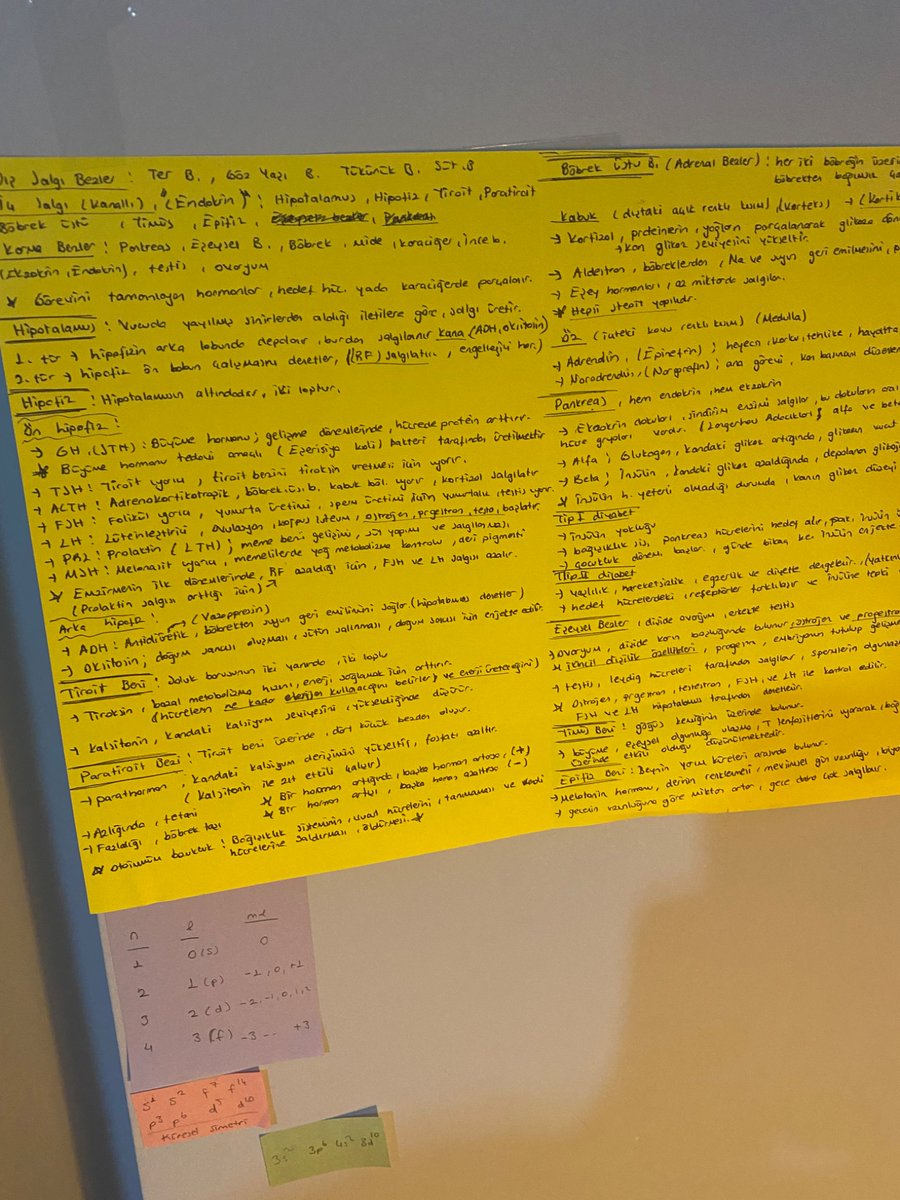 Dış Salgı Bezler : Ter B., Göz Yaşı B. Tükürük B. Süt B
İç Salgı (Kanallı), (Endokrin) : Hipotalamus, Hipofiz, Tiroit, Paratiroit
Böbrek üstü, Timüs, Epifiz,
Karma Bezler : Pankreas, Eşeysel B., Böbrek, Mide, Karaciğer, İnce b.
(Ekzokrin, Endokrin), testis, ovaryum
* Görevini tamamlayan hormonlar, hedef hüc. yada karaciğerde parçalanır.
Hipotalamus : Vücuda yayılmış sinirlerden aldığı iletilere göre, salgı üretir.
1. tür → hipofizin arka lobunda depolanır, burdan salgılanır kana (ADH, oksitosin)
2. tür → hipofiz ön lobun çalışmasını denetler, (RF) salgılatır, engelleyici hor.)
Hipofiz : Hipotalamusun altındadır, iki loptur.
Ön hipofiz :
→ GH, (STH) : Büyüme hormonu; gelişme dönemlerinde, hücrede protein arttırır.
* Büyüme hormonu tedavi amaçlı (Eşerişiya koli) bakteri tarafından üretilmektedir
→ TSH : Tiroit uyarıcı, tiroit bezini tiroksin üretmesi için uyarır.
→ ACTH : Adrenokortikotropik, böbrek.üs.b. kabuk böl. uyarır, kortizol salgılatır
→ FSH : Folikül uyarıcı, yumurta üretimi, sperm üretimi için yumurtalık, testis uyarır.
→ LH : Lüteinleştirici, Ovulasyon, korpus luteum, östrojen, progestron, testo, başlatır.
→ PRL : Prolaktin (LTH); meme bezi gelişimi, süt yapımı ve salgılanması
→ MSH : Melanosit uyarıcı, memelilerde yağ metabolizma kontrolü, deri pigmenti
* Emzirmenin ilk dönemlerinde, RF azaldığı için, FSH ve LH salgısı azalır.
(Prolaktin salgısı arttığı için)
Arka hipofiz : (Vazopressin)
→ ADH : Antidiüretik, böbrekten suyun geri emilimini sağlar. (hipotalamus denetler)
→ Oksitosin; doğum sancısı oluşması, sütün salınması, doğum sancısı için enjekte edilir.
Tiroit Bezi : Soluk borusunun iki yanında, iki loplu
→ Tiroksin, bazal metabolizma hızını, enerji sağlamak için arttırır.
(hücrelerin ne kadar oksijen kullanacağını belirler) ve enerji üreteceğini)
→ Kalsitonin, kandaki kalsiyum seviyesini, yükseldiğinde düşürür.
Paratiroit Bezi : Tiroit bezi üzerinde, dört küçük bezden oluşur.
→ parathormon, kandaki kalsiyum derişimini yükseltir, fosfatı azaltır.
(Kalsitonin ile zıt etkili çalışır)
→ Azlığında, tetani * Bir hormon arttığında, başka hormon artarsa, (+)
→ Fazlalığı, böbrek taşı * Bir hormon artışı, başka hormon azaltırsa (-)
* Otoimmün bozukluk : Bağışıklık sisteminin, vücut hücrelerini, tanımaması ve kendi
hücrelerine saldırması, öldürmesi.*
Böbrek Üstü B. (Adrenal Bezler) : her iki böbreğin üzerin
böbrekten bağımsız
Kabuk (dıştaki açık renkli kısım) (Korteks) →
→ Kortizol, proteinlerin, yağların parçalanarak glikoza dön
→ Kan glikoz seviyesini yükseltir.
→ Aldosteron, böbreklerden, Na ve suyun geri emilmesini,
→ Eşey hormonları, az miktarda salgılanır.
* Hepsi steoit yapılıdır.
ÖZ (içteki koyu renkli kısım) (Medulla)
→ Adrenalin, (Epinefrin); heyecan, korku, tehlike, hayatta
→ Noradrenalin, (Norepinefrin); ana görevi kan basıncı düzenle
Pankreas, hem endokrin, hem ekzokrin
→ Ekzokrin dokuları, sindirim enzimi salgılar, bu dokuların ara
hücre grupları vardır. (Langerhans Adacıkları) alfa ve beta
→ Alfa; Glukagon, kandaki glikoz
→ Beta; İnsülin, kandaki glikoz azaldığında, depolanan glikojen
* İnsülin h. yeterli olmadığı durumda, kanın glikoz düzeyi
Tip I diyabet
→ insülin yokluğu
→ bağışıklık sis, pankreas hücrelerini hedef alır,
→ çocukluk dönemi başlar, günde birkaç kez insülin enjekte
Tip II diyabet
→ yaşlılık, hareketsizlik, egzersiz ve diyetle dengelenir.
→ hedef hücrelerdeki reseptörler farklılaşır ve insüline tepki
Eşeysel Bezler : dişide ovaryum, erkekte testis
→ Ovaryum, dişide karın boşluğunda bulunur, östrojen ve progestron
* ikincil dişilik özellikleri, progestron, embriyonun tutulup gelişme
→ testis, leydig hücreleri tarafından salgılanır, spermlerin olgunlaş
* Östrojen, progestron, testestron, FSH, ve LH ile kontrol edilir.
FSH ve LH hipotalamus tarafından denetlenir.
Timüs Bezi : göğüs kemiğinin üzerinde bulunur.
→ büyüme, eşeysel olgunluğa ulaşma, T lenfositlerini uyararak, bağ
üzerinde etkili olduğu düşünülmektedir.
Epifiz Bezi : Beynin yarım küreleri arasında bulunur.
→ Melatonin hormonu, derinin renklenmesi, mevsimsel gün uzunluğu,
→ gecenin uzunluğuna göre miktarı artar, gece daha çok salgılanır.
n l ml
1 0(s) 0
2 1(p) -1, 0, +1
3 2(d) -2, -1, 0, 1, 2
4 3(f) -3 ... +3
s¹ s² f⁷ f¹⁴
p³ p⁶ d⁵ d¹⁰
Küresel Simetri
3s² 3p⁶ 4s² 3d¹⁰